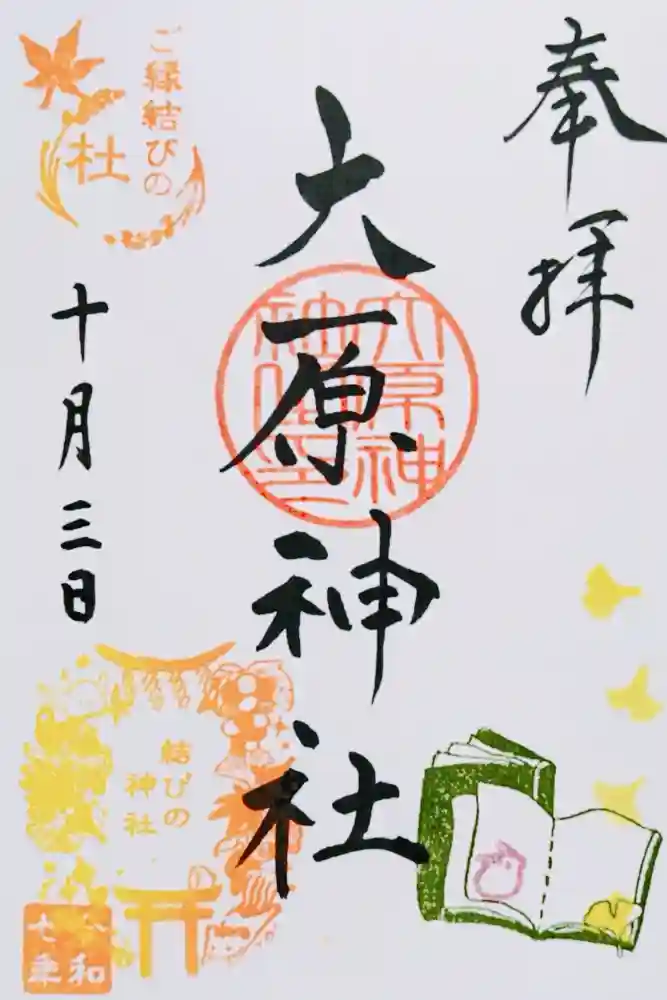 奉拝
大原神社
大原神
社之印
ご縁結びの
杜
十月三日
結びの
神社
令和
七年